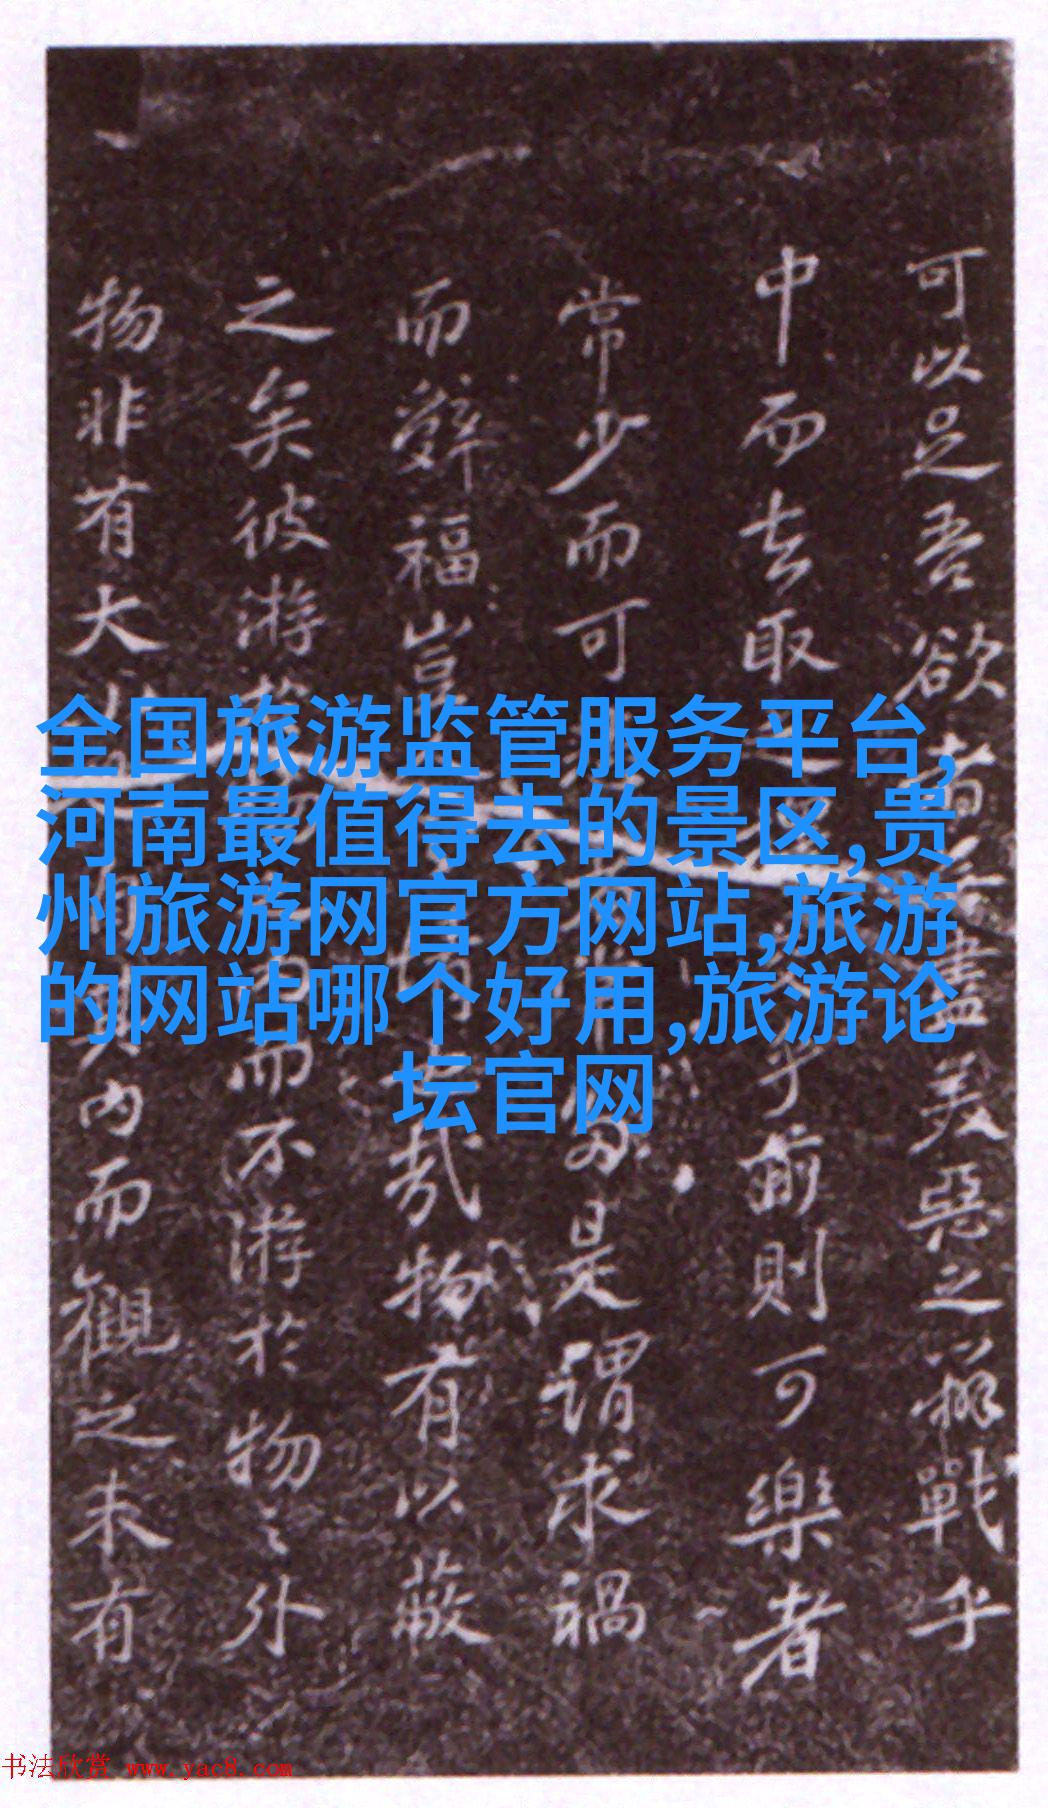 可以足吾欲者盡美惡之辨戰乎
中而去取乎前則可樂者
常少而可是謂求禍
而辭福豈哉物有以蔽
之矣彼游而不游於物之外
物非有大内而觀之未有
全国旅游监管服务平台,
河南最值得去的景区,贵
州旅游网官方网站,旅游
的网站哪个好用,旅游论
坛官网
书法欣赏 www.yac8.com